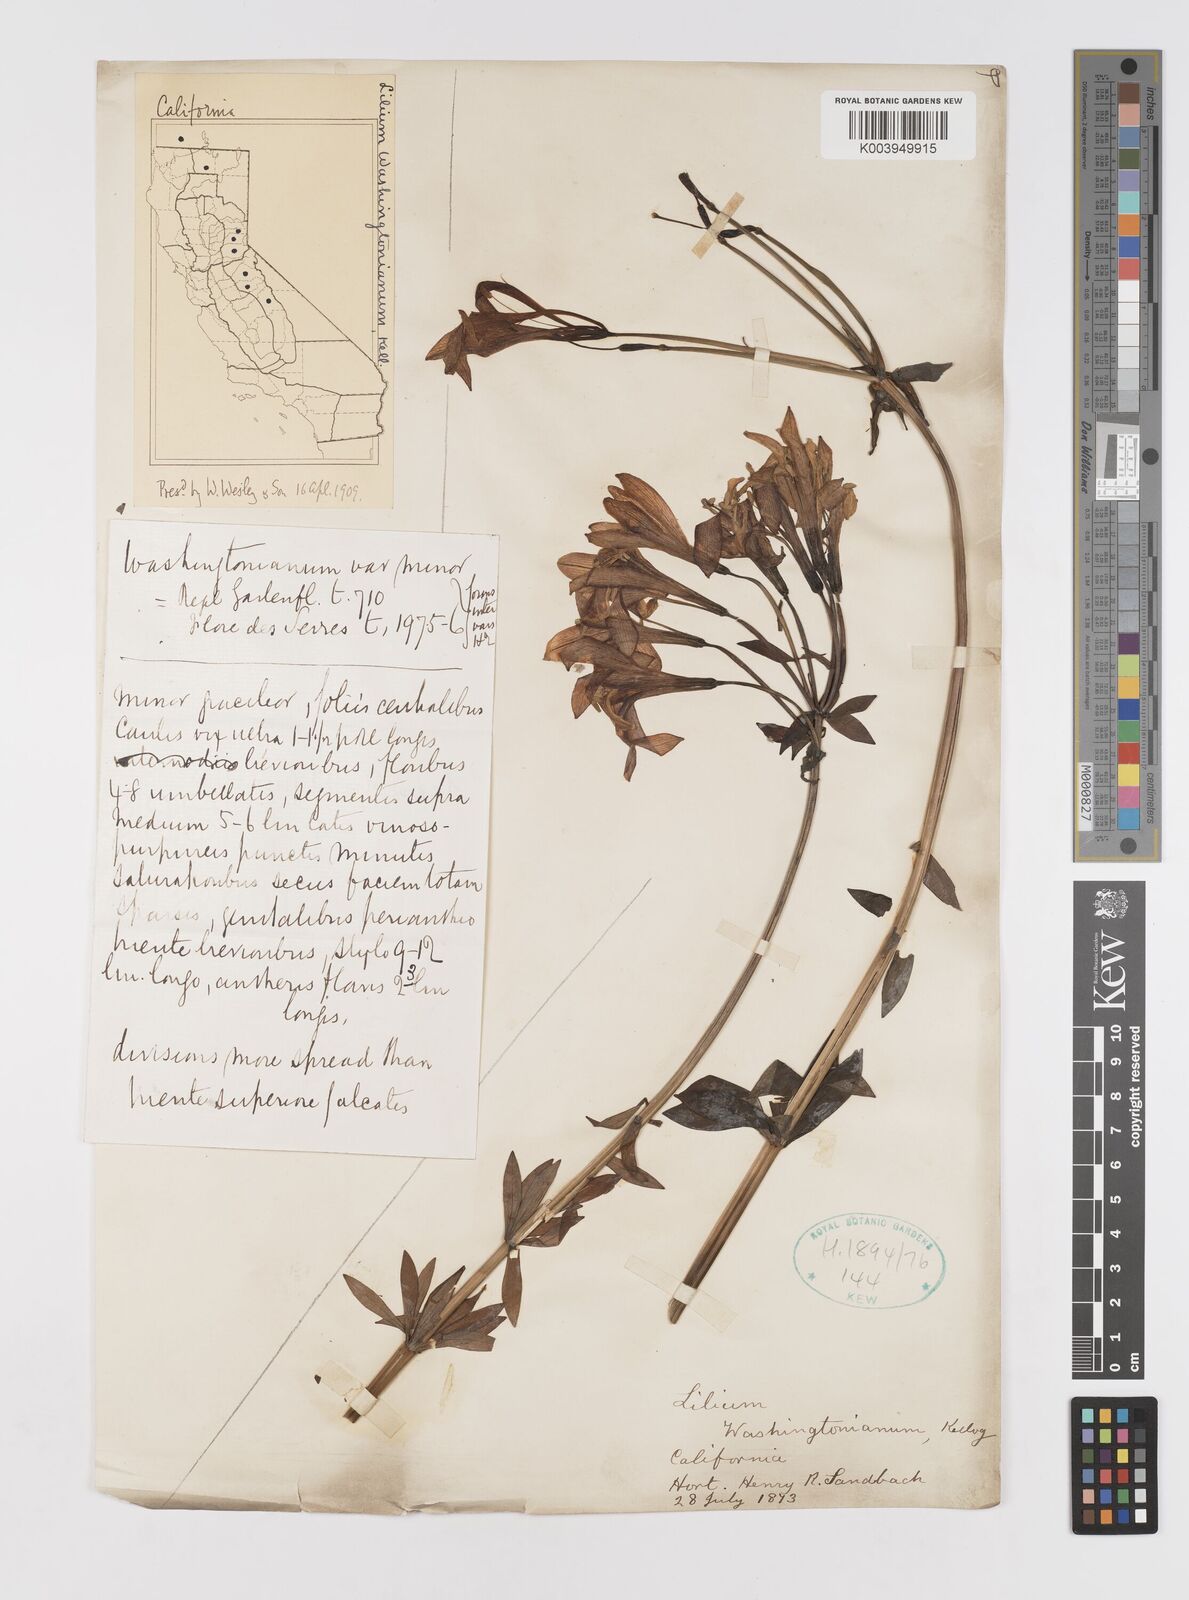 California
Lilium Washingtonianum, Kell.
Presd. by W. Wesley & Son 16 Apl. 1909.
ROYAL BOTANIC GARDENS KEW
K003949915
Washingtonianum var minor
= Regel Gartenfl. t. 710
Flore des Serres t, 1975-6
forms
inter
vars
minor gracilior, foliis centralibus
Caulis vix ultra 1-1½ poll longis
brevioribus, floribus
4-8 umbellatis, segmentis supra
medium 5-6 lin latis vinoso-
purpureis punctis minutis
saturatioribus secus faciem totam
sparsis, genitalibus perianthio
triente brevioribus, stylo 9-12
lin. longo, antheris flavis 2-3 lin
longis.
divisions more spread than
triente superiore falcatis
ROYAL BOTANIC GARDENS
H.1894/76
144
KEW
Lilium
Washingtonianum, Kellog
California
Hort. Henry R. Sandbach
28 July 1873
inches
cm
Density
Don Williams
M000827
Kew
Royal Botanic Gardens
copyright reserved
10
9
8
7
6
5
4
3
2
1
0
cm